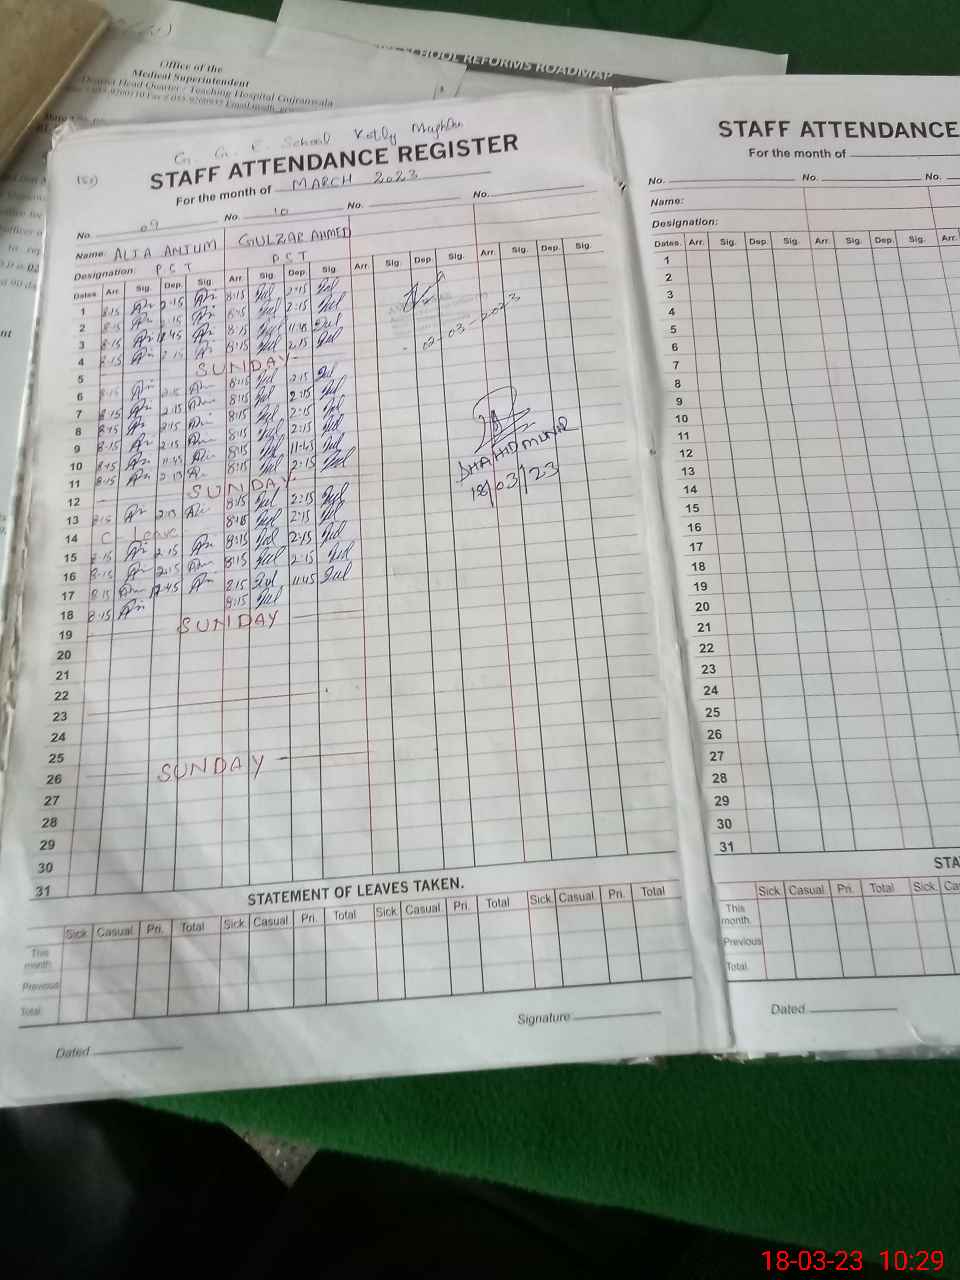 Office of the
Medical Superintendent
District Head Quarter - Teaching Hospital Gujranwala
SCHOOL REFORMS ROADMAP
G. G. E. School Kotly Mughlan
STAFF ATTENDANCE REGISTER
For the month of MARCH 2023
No. 09 No. 10 No. No.
Name: ALIA ANJUM GULZAR AHMED
Designation: P C T P C T
Dates Arr. Sig. Dep. Sig. Arr. Sig. Dep. Sig. Arr. Sig. Dep. Sig. Arr. Sig. Dep. Sig.
1 8:15 2:15 8:15 2:15
2 8:15 2:15 8:15 2:15
3 8:15 11:45 8:15 11:45
4 8:15 2:15 8:15 2:15
02-03-2023
5 SUNDAY
6 8:15 2:15 8:15 2:15
7 8:15 2:15 8:15 2:15
8 8:15 2:15 8:15 2:15
9 8:15 2:15 8:15 2:15
10 8:15 11:45 8:15 11:45
11 8:15 2:15 8:15 2:15
SHAHID MUNIR
18/03/23
12 SUNDAY
13 8:15 2:15 8:15 2:15
14 C. Leave 8:15 2:15
15 8:15 2:15 8:15 2:15
16 8:15 2:15 8:15 2:15
17 8:15 12:45 8:15 11:45
18 8:15 8:15
19 SUNDAY
20
21
22
23
24
25
26 SUNDAY
27
28
29
30
31
STATEMENT OF LEAVES TAKEN.
Sick Casual Pri. Total Sick Casual Pri. Total Sick Casual Pri. Total Sick Casual Pri. Total
This month
Previous
Total
Signature
Dated
STAFF ATTENDANCE
For the month of
No. No. No.
Name:
Designation:
Dates Arr. Sig. Dep. Sig. Arr. Sig. Dep. Sig. Arr.
1
2
3
4
5
6
7
8
9
10
11
12
13
14
15
16
17
18
19
20
21
22
23
24
25
26
27
28
29
30
31
STA
Sick Casual Pri. Total Sick Ca
This month
Previous
Total
Dated
18-03-23 10:29